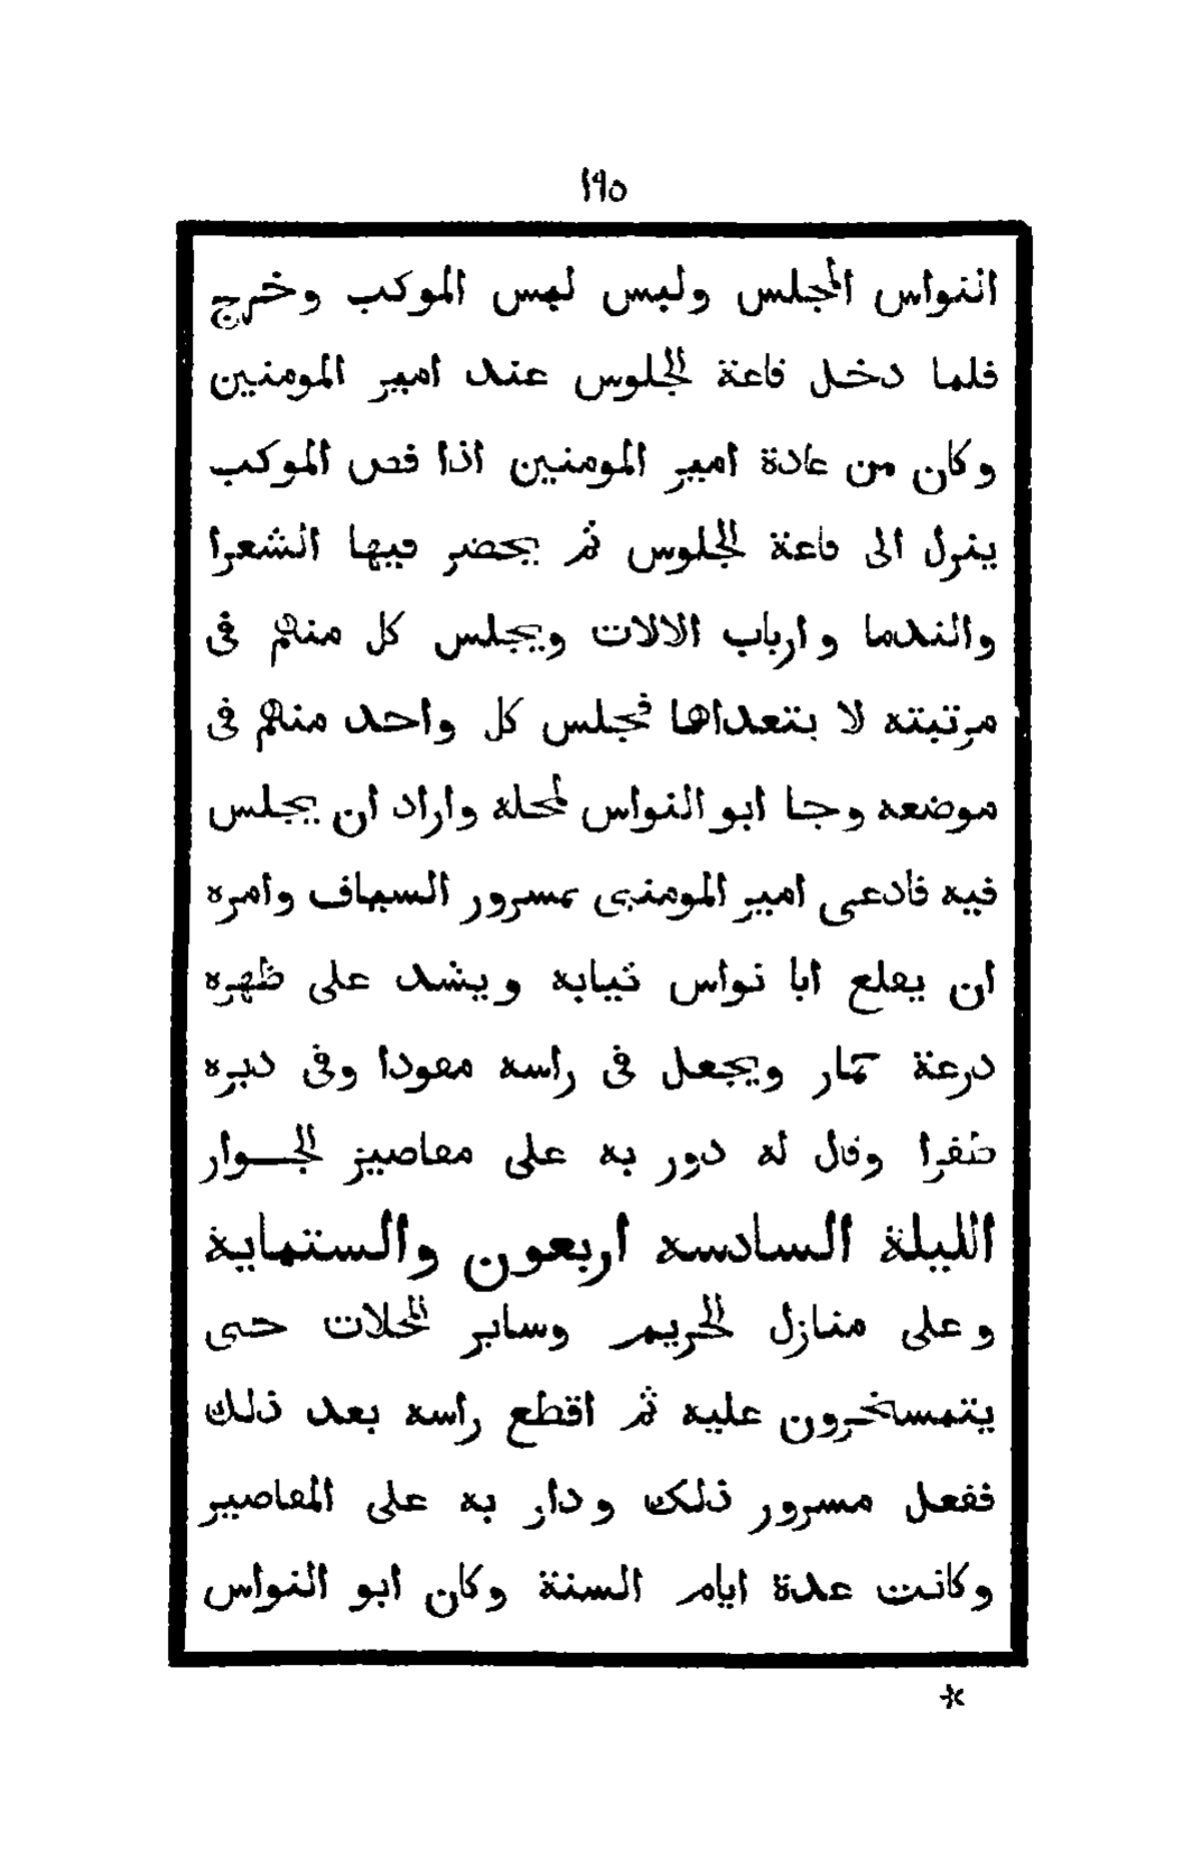 ١٩٥
النواس المجلس ولبس لبس الموكب وخرج
فلما دخل قاعة الجلوس عند امير المومنين
وكان من عادة امير المومنين اذا فص الموكب
ينزل الى قاعة الجلوس ثم يحضر فيها الشعرا
والندما وارباب الالات ويجلس كل منهم فى
مرتبته لا يتعداها فجلس كل واحد منهم فى
موضعه وجا ابو النواس لمحله واراد ان يجلس
فيه فادعى امير المومنين بمسرور السياف وامره
ان يقلع ابا نواس ثيابه ويشد على ظهره
درعة حمار ويجعل فى راسه مقودا وفى دبره
طفرا وقال له دور به على مقاصيز الجوار
الليلة السادسه اربعون والستماية
وعلى منازل الحريم وساير المحلات حتى
يتمسخرون عليه ثم اقطع راسه بعد ذلك
ففعل مسرور ذلك ودار به على المقاصير
وكانت عدة ايام السنة وكان ابو النواس
*